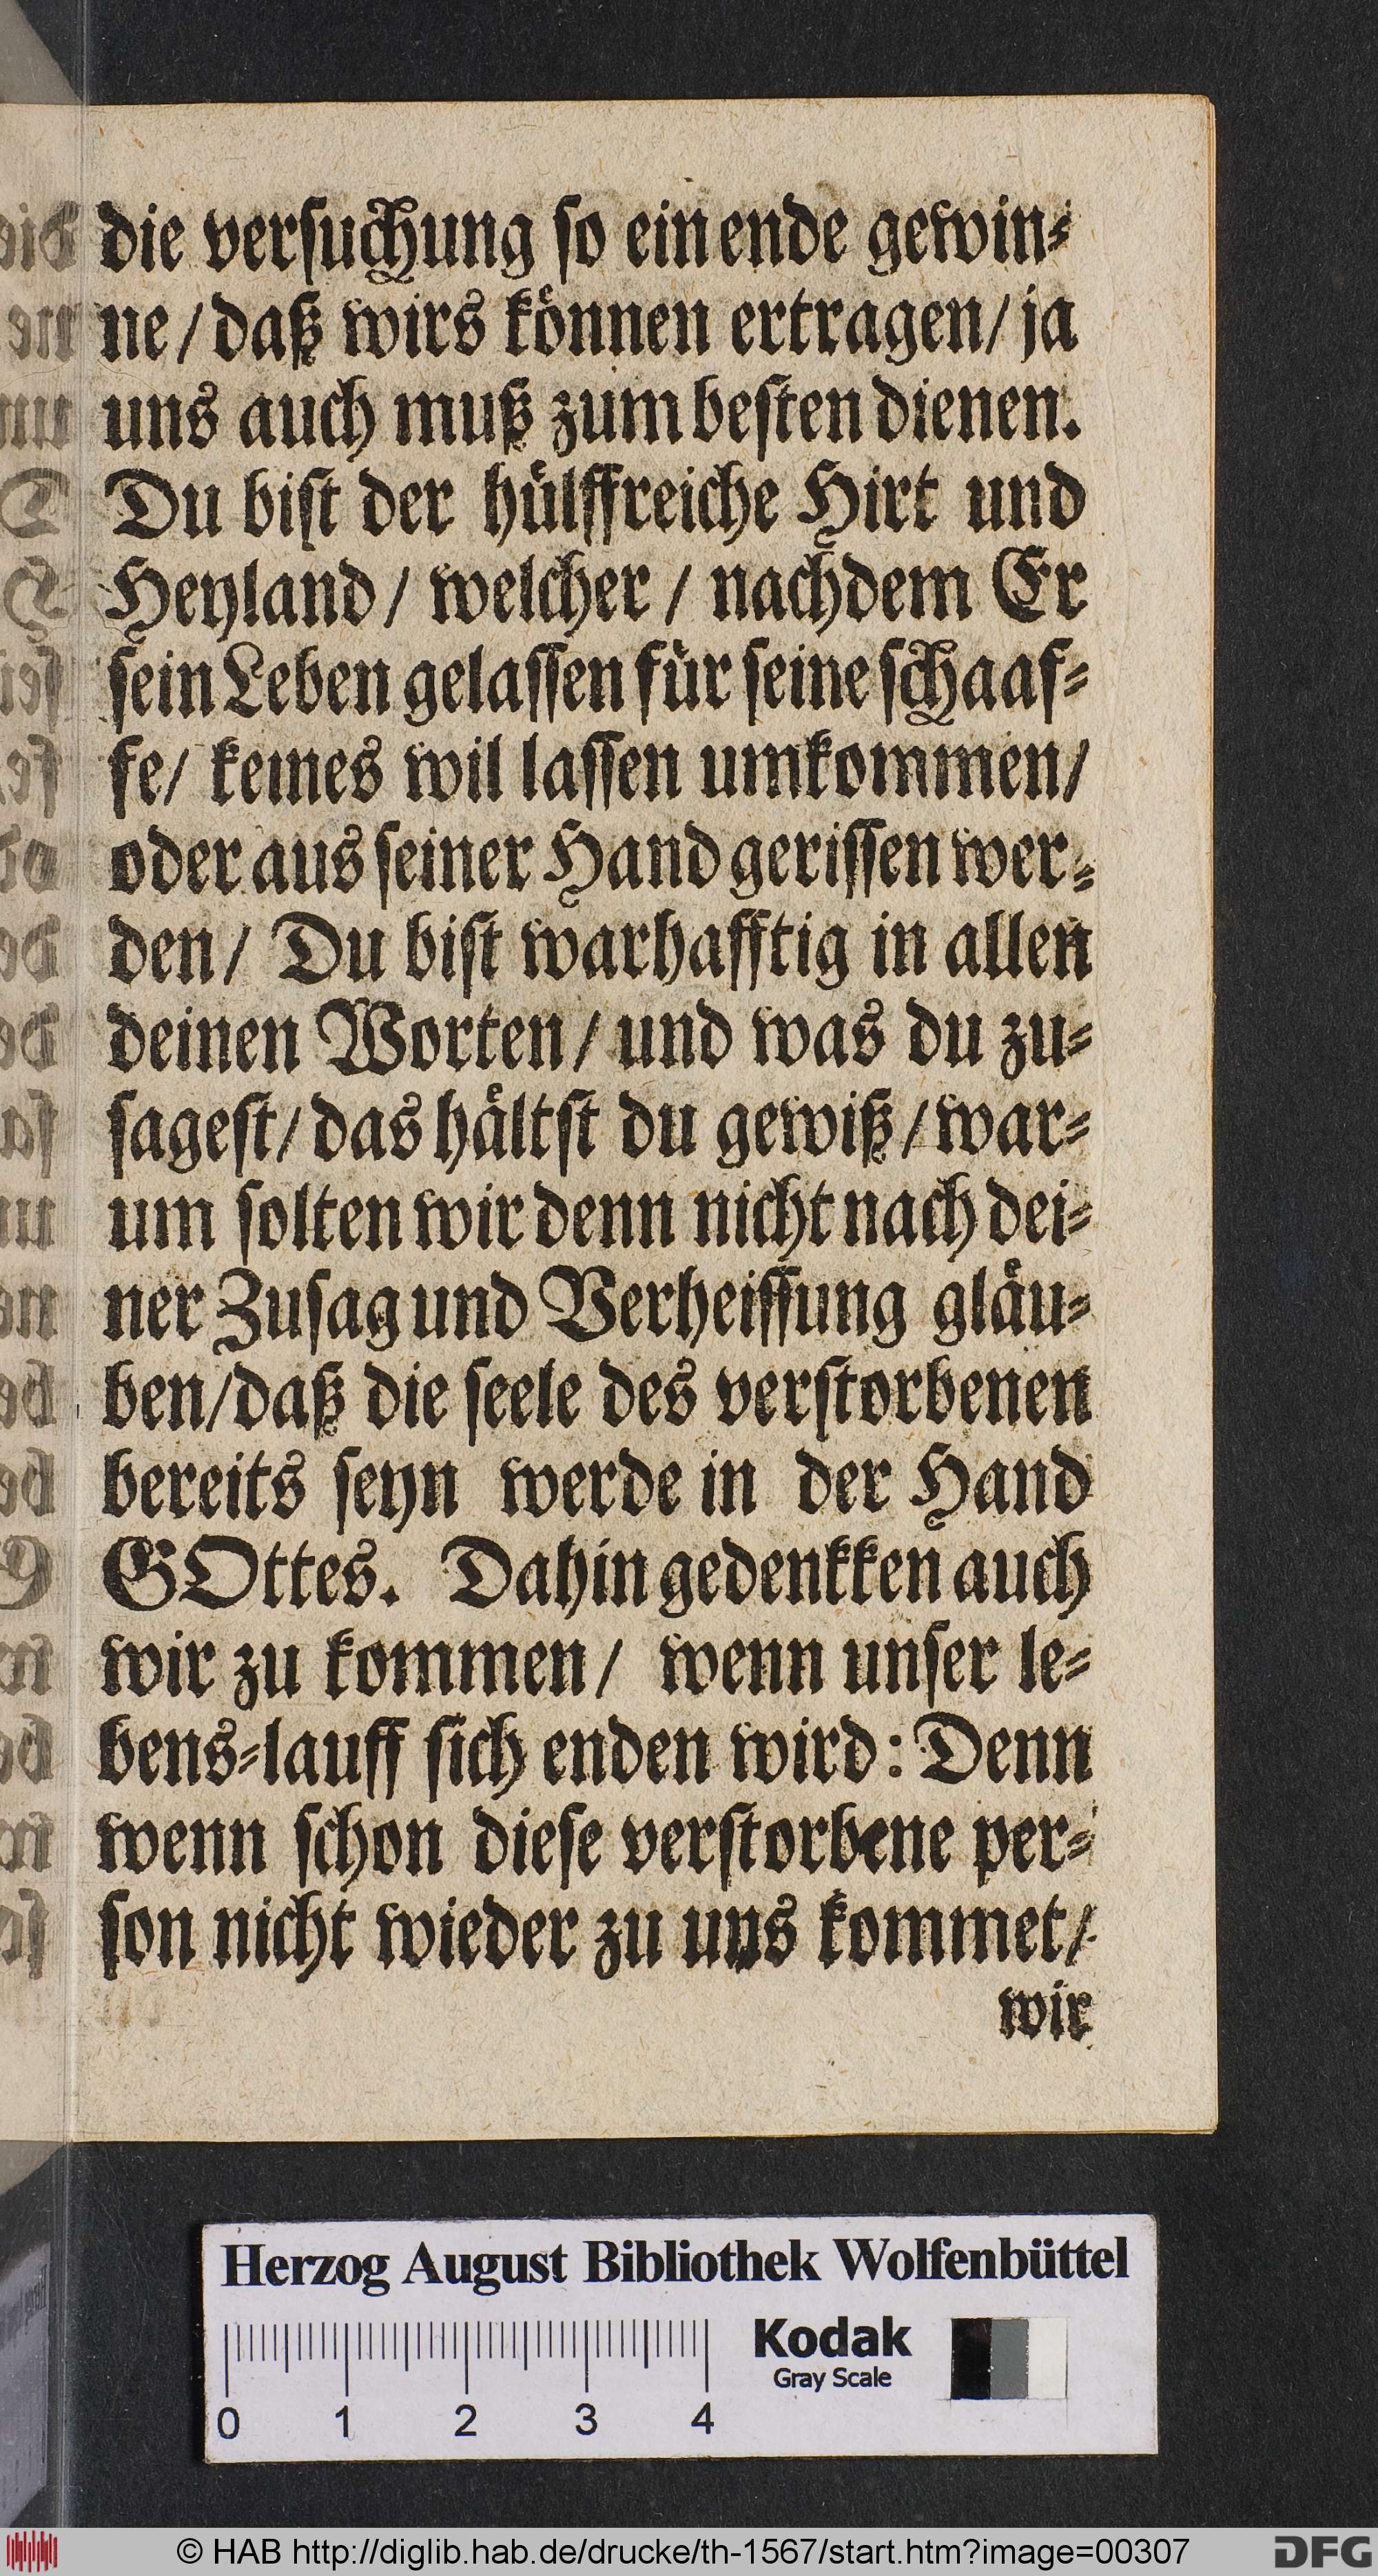 die verſuchung ſo ein ende gewin⸗
ne / daß wirs koͤnnen ertragen / ja
uns auch muß zum beſten dienen.
Du biſt der huͤlffreiche Hirt und
Heyland / welcher / nachdem Er
ſein Leben gelaſſen fuͤr ſeine ſchaaf⸗
fe / keines wil laſſen umkommen /
oder aus ſeiner Hand geriſſen wer⸗
den / Du biſt warhafftig in allen
deinen Worten / und was du zu⸗
ſageſt / das haͤltſt du gewiß / war⸗
um ſolten wir denn nicht nach dei⸗
ner Zuſag und Verheiſſung glaͤu⸗
ben / daß die ſeele des verſtorbenen
bereits ſeyn werde in der Hand
GOttes. Dahin gedenkken auch
wir zu kommen / wenn unſer le⸗
bens⸗lauff ſich enden wird: Denn
wenn ſchon dieſe verſtorbene per⸗
ſon nicht wieder zu uns kommet /
wir
Herzog August Bibliothek Wolfenbüttel
Kodak
Gray Scale
0 1 2 3 4
© HAB http://diglib.hab.de/drucke/th-1567/start.htm?image=00307
DFG